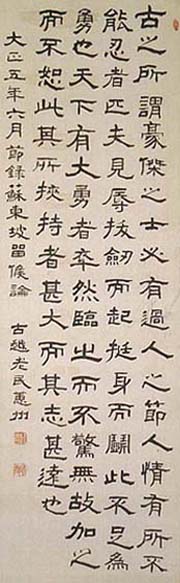 古之所謂豪傑之士必有過人之節人情有所不
能忍者匹夫見辱拔劒而起挺身而鬭此不足為
勇也天下有大勇者卒然臨之而不驚無故加之
而不怒此其所挾持者甚大而其志甚遠也
大正五年六月節錄蘇東坡留侯論 古越老民蕙州